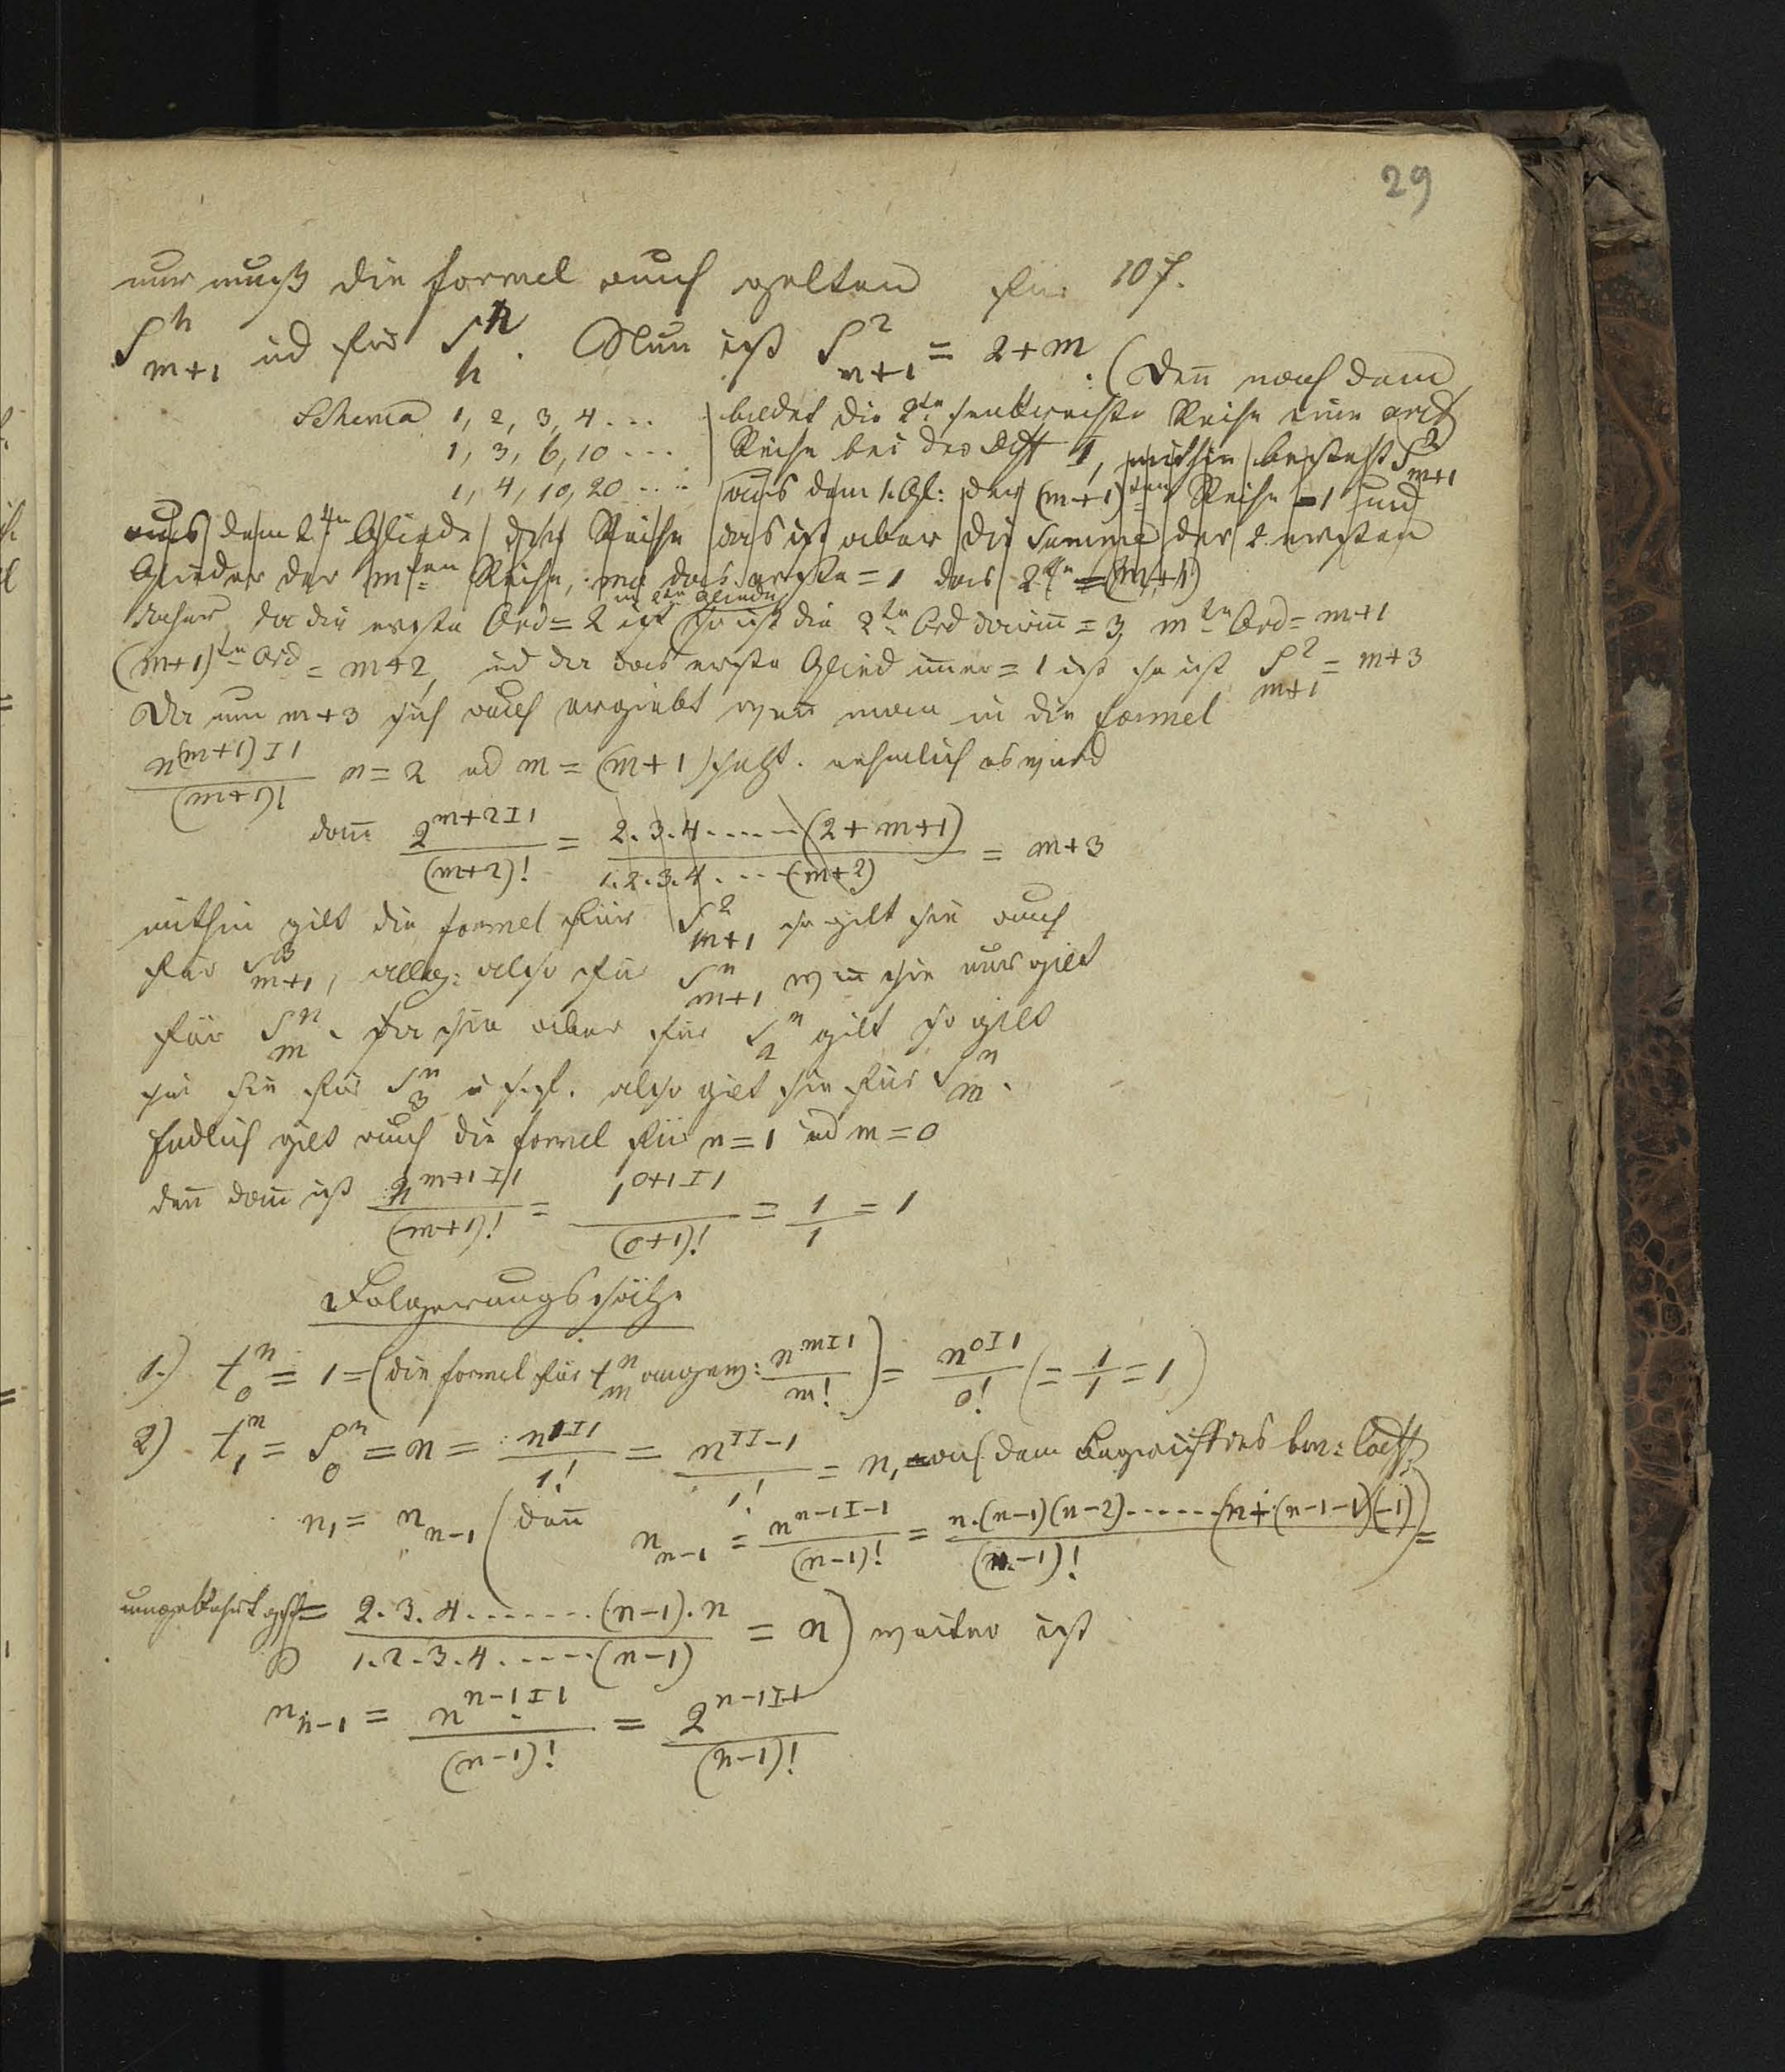 29
nur muß die formel auch gelten für 107.
S^n_{m+1} ud für S^n_n. Nun ist S^2_{m+1} = 2+m. (den nach dem
Schema 1, 2, 3, 4 ... bildet die 2te senkrechte Reihe eine arith
1, 3, 6, 10 ... Reihe bei der Diff 1, mithin besteht S^2_{m+1}
1, 4, 10, 20 ... aus dem 1. Gl: der (m+1)ten Reihe = 1 und
aus dem 2ten Gliede dieser Reihe das ist aber die Summe der 2 ersten
Glieder der mten Reihe, das erste = 1 das 2te = (m+1)
daher, da die erste Ord = 2 ist im 2ten Gliede so ist die 2te Ord darin = 3, mte Ord = m+1
(m+1)te Ord = m+2, ud da das erste Glied imer = 1 ist so ist S^2_{m+1} = m+3
Da nun m+3 sich auch ergiebt wen man in die formel
n^{(m+1)I1}/(m+1)! n = 2 ud m = (m+1) setzt. nehmlich es wird
dan 2^{m+2I1}/(m+2)! = 2.3.4.....(2+m+1)/1.2.3.4....(m+2) = m+3
mithin gilt die formel für S^2_{m+1} so gilt sie auch
für S^3_{m+1}, allg: also für S^n_{m+1} wen sie nur gilt
für S^n_m. Da sie aber für S^n_2 gilt so gilt
sie für S^n_3 u s.f. also gilt sie für S^n_m.
Endlich gilt auch die formel für n = 1 ud m = 0
den dan ist n^{m+1I1}/(m+1)! = 1^{0+1I1}/(0+1)! = 1/1 = 1
Folgerungssätze
1.) t^n_0 = 1 = (die formel für t^n_m angew: n^{mI1}/m!) = n^{0I1}/0! (= 1/1 = 1)
2) t^n_1 = S^n_0 = n = n^{1I1}/1! = n^{1I-1}/1! = n_1 aus dem Begriff des bin: Coeff
n_1 = n_{n-1} (den n_{n-1} = n^{n-1I-1}/(n-1)! = n.(n-1)(n-2)......(n+(n-1-1)(-1))/(n-1)! =
umgekehrt = 2.3.4.......(n-1).n/1.2.3.4.....(n-1) = n) weiter ist
n_{n-1} = n^{n-1I1}/(n-1)! = 2^{n-1I+}/(n-1)!